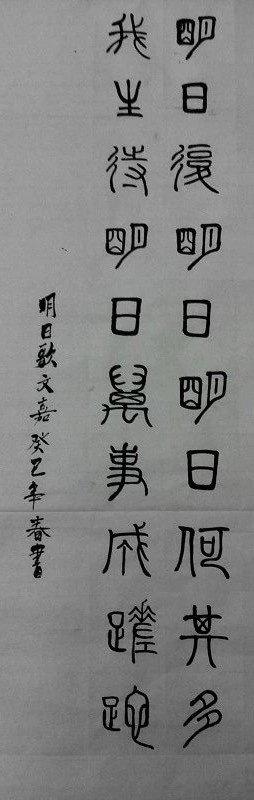 明日復明日明日何其多
我生待明日萬事成蹉跎
明日歌文嘉癸巳年春書